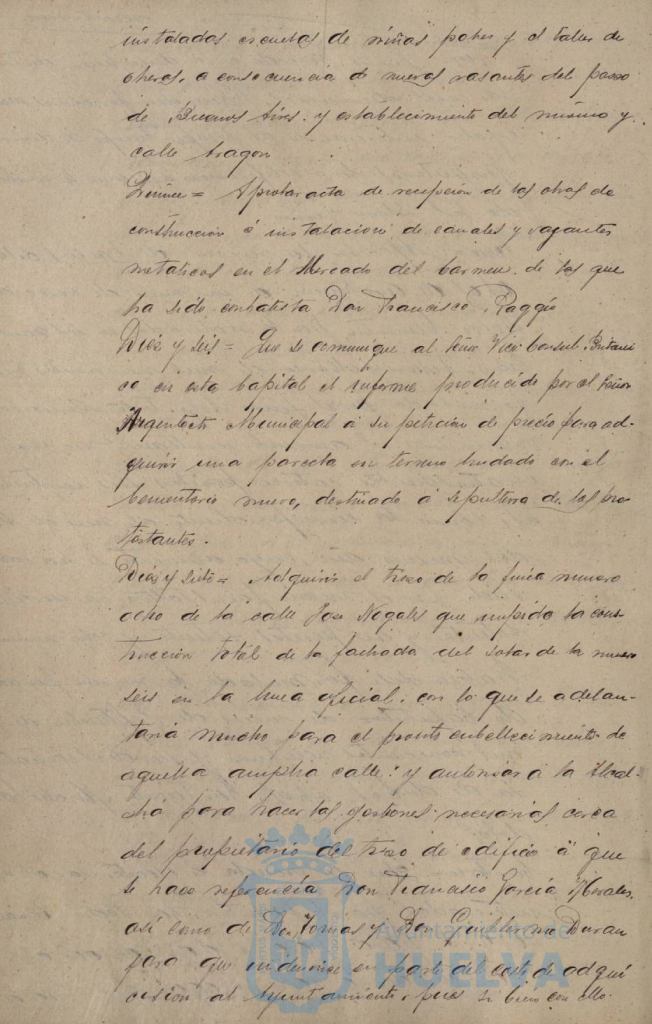 instaladas escuelas de niñas pobres y el taller de
obreras, a consecuencia de nuevas rasantes del paseo
de Buenos Aires y establecimiento del mismo y
calle Aragon
Quince = Aprobar acta de recepcion de las obras de
construccion é instalacion de canales y
metalicos en el Mercado del Carmen de las que
ha sido contratista Don Francisco Raggio
Diez y seis = Que se comunique al Señor Vice Consul Britani
co en esta Capital el informe producido por el Señor
Arquitecto Municipal á su peticion de precio para ad-
quirir una parcela en terreno lindado con el
Cementerio nuevo, destinado á sepultura de los pro
testantes.
Diez y siete = Adquirir el trozo de la finca numero
ocho de la calle Jose Nogales que impide la cons-
truccion total de la fachada del solar de la numero
seis en la linea oficial, con lo que se adelan-
taria mucho para el pronto embellecimiento de
aquella amplia calle: y autorizar á la Alcal-
dia para hacer las gestiones necesarias cerca
del propietario del trozo de edificio á que
se hace referencia Don Francisco Garcia Morales,
asi como de Don Tomas y Don Guillermo Duran
para que indemnice en parte del coste de adqui
cision al Ayuntamiento, pues si bien con ello
Ayuntamiento de
HUELVA